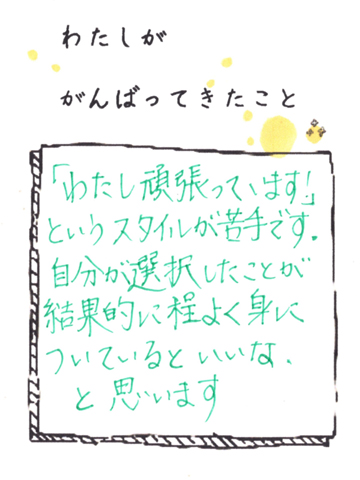 わたしが
がんばってきたこと
「わたし頑張っています!」
というスタイルが苦手です.
自分が選択したことが
結果的に程よく身に
ついているといいな.
と思います